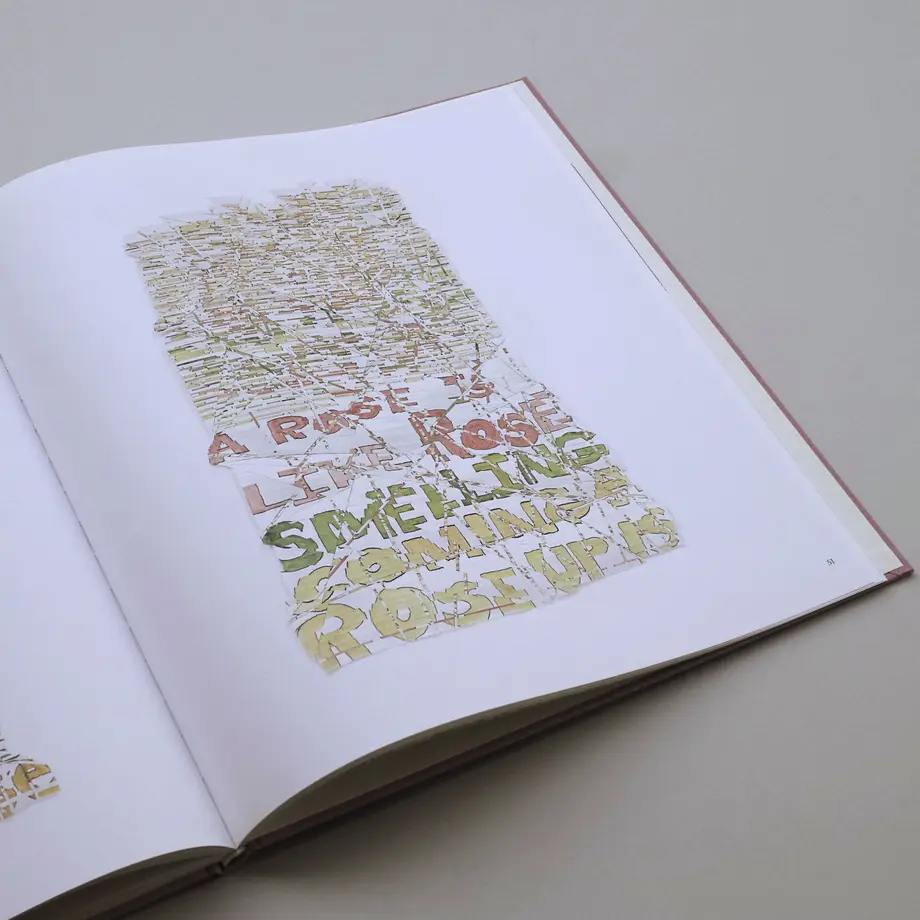 A ROSE IS
LIKE ROSE
SMELLING
COMING A
ROSE UP IS
51